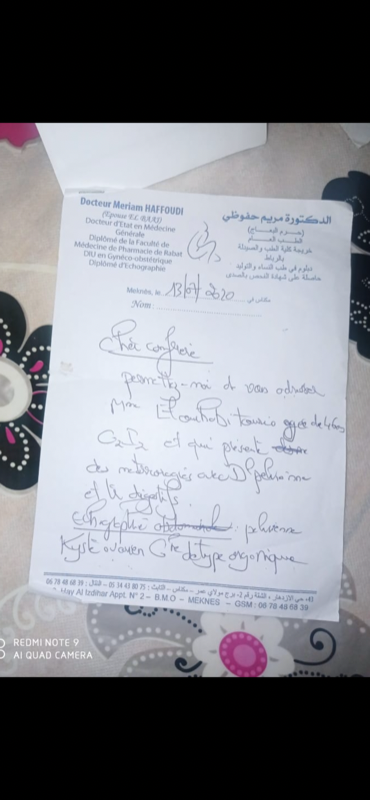 Docteur Meriam HAFFOUDI
Docteur d'Etat en Médecine
Générale
Diplômé de la Faculté de
Médecine de Pharmacie de Rabat
DIU en Gynéco-obstétrique
Diplômé d'Echographie
الدكتورة مريم حفوظي
الطب العام
خريجة كلية الطب والصيدلة
بالرباط
دبلوم في طب النساء والتوليد
حاصلة على شهادة الفحص بالصدى
Meknès, le 13/07/2020 مكناس في
Nom
permettez-moi de vous adresser
Mme agée de 46 ans
G2P2 et qui présent
des métrorragies avec Dl pelvienne
et digestifs.
Echographie abdominale pelvienne
Kyste ovarien Gche de type organique
05 34 43 80 75 06 78 48 68 39
Hay Al Izdihar Appt. N° 2 - B.M.O - MEKNES - GSM : 06 78 48 68 39
REDMI NOTE 9
AI QUAD CAMERA